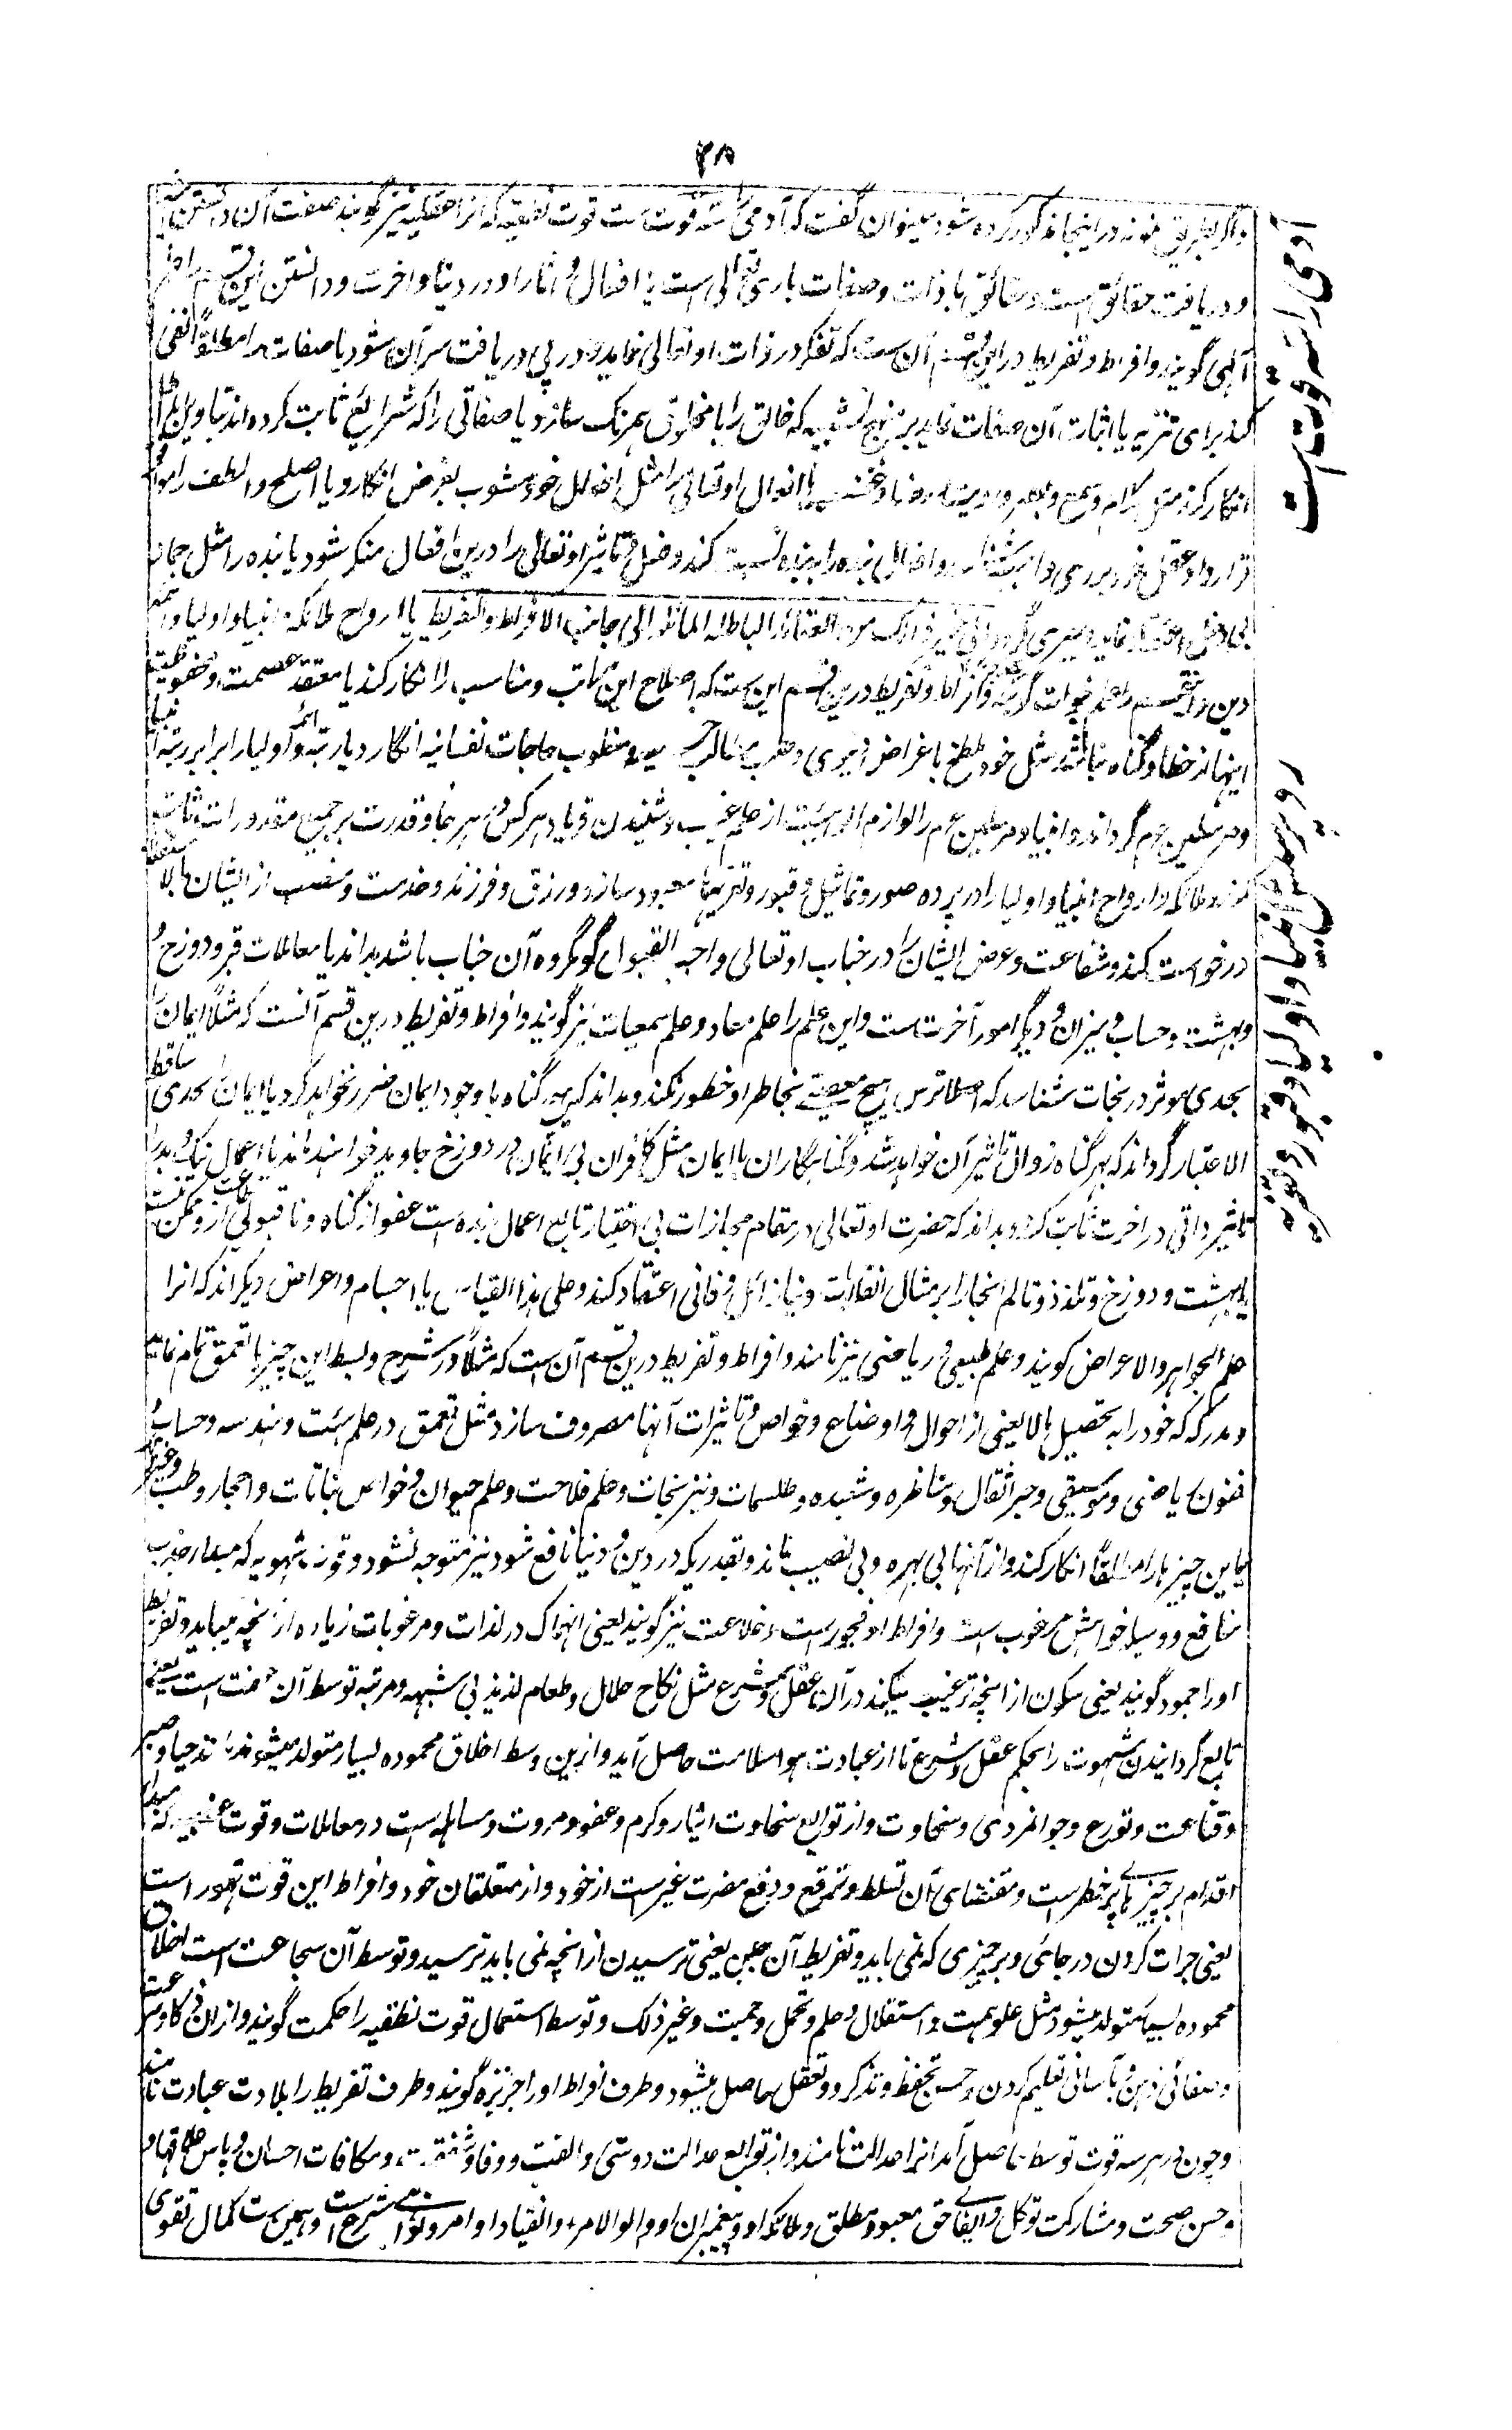 ۳۸
واگر بطریق نمونه در اینجا مذکور کرده شود میتوان گفت که آدمی را سه قوت ست قوت نطقیه که آنرا عقلیه نیز گویند صفت آن دانستن
و دریافت حقائق است و حقائق یا ذات و صفات باری تعالی است یا افعال و آثار او در دنیا و آخرت و دانستن این قسم را علم
آلهی گویند و افراط و تفریط در این قسم آن ست که تفکر در ذات او تعالی نماید و در پی دریافت سر آن شود یا صفات را مطلقاً نفی
کند برای تنزیه یا اثبات آن صفات نماید بر نهج تشبیه که خالق را با مخلوق همرنگ سازد یا صفاتی را که شرائع ثابت کرده اند بتاویل
انکار کند مثل کلام و سمع و بصر و رویت و رضا و غضب یا افعال او تعالی را مثل افعال خود مشوب بغرض انگارد یا اصلح و الطف را
قرار داد عقل خود بر وی واجب شناسد و افعال بنده را به بنده نسبت کند و دخل و تاثیر او تعالی را درین افعال منکر شود یا بنده را مثل جماد
بی دخل اعتقاد نماید و جبری گردد الی غیر ذلک من العقائد الباطله المائله الی جانب الافراط والتفریط یا ارواح ملائکه و انبیا و اولیا و
دین و این قسم را علم نبوات گویند و افراط و تفریط درین قسم این ست که اصلاح این مراتب و مناصب را انکار کند یا معتقد عصمت و محفوظیت
اینها از خطا و گناه نباشد و مثل خود مطمح با غراض دنیوی و مغلوب حاجات نفسانیه انگارد یا رتبه ائمه و اولیا را برابر رتبه انبیا
و مرسلین هم گرداند و انبیا و مرسلین هم را لوازم الوهیت از علم غیب و شنیدن فریاد هر کس و هر جا و قدرت بر جمیع مقدورات ثابت
کند و ملائکه و ارواح انبیا و اولیا را در پرده صور و تماثیل و قبور و تعزیها معبود سازد و رزق و فرزند و خدمت و منصب از ایشان
درخواست کند و شفاعت و عرض ایشان را در جناب او تعالی واجب القبول گو مکروه آن جناب باشد بداند یا معاملات قبر و دوزخ و
و بهشت و حساب و میزان و دیگر امور آخرت ست و این علم را علم معاد و علم سمعیات نیز گویند و افراط و تفریط درین قسم آنست که مثلاً ایمان را
بحدی موثر در نجات شناسد که اصلا ترس هیچ معصیت بخاطر او خطور نکند و بداند که هر گناه با وجود ایمان ضرر نخواهد کرد یا ایمان را بحدی ساقط
الاعتبار گرداند که بهر گناه زوال تاثیر آن خواهد شد و گناهگاران با ایمان مثل کافران بی ایمان در دوزخ جاوید خواهند ماند یا اعمال نیک و بد را
تاثیر ذاتی در آخرت ثابت کند و بداند که حضرت او تعالی در مقام مجازات بی اختیار تابع اعمال بنده است عفو از گناه و ناقبولی طاعت ازو ممکن نیست
یا بهشت و دوزخ و تلذذ و تالم آنجا را بر مثال انقلابات دنیا زائل و فانی اعتقاد کند و علی هذا القیاس یا اجسام و اعراض دیگر اند که آنرا
علم الجواهر والاعراض گویند و علم طبیعی و ریاضی نیز نامند و افراط و تفریط درین قسم آن ست که مثلاً در شرح و بسط این چیزها تعمق تمام نماید
و مدرکه خود را به تحصیل ما لا یعنی از احوال و اوضاع و خواص و تاثیرات آنها مصروف سازد مثل تعمق در علم هیئت و هندسه و حساب و
فنون ریاضی و موسیقی و جر اثقال و مناظره و شعبده و طلسمات و نیرنجات و علم فلاحت و علم حیوان و خواص نباتات و احجار و طب و غیره
یا این چیزها را مطلقاً انکار کند و از آنها بی بهره و بی نصیب ماند و بقدریکه در دین و دنیا نافع شود نیز متوجه نشود و قوت شهویه که مبدا جذب
منافع و وسیله خواهش مرغوب است و افراط او فجور است و خلاعت نیز گویند یعنی انهماک در لذات و مرغوبات زیاده از آنچه میباید و تفریط
او را جمود گویند یعنی سکون از آنچه ترغیب میکند در آن عقل و شرع مثل نکاح حلال و طعام لذیذ بی شبهه و مرتبه توسط آن عفت است یعنی
تابع گردانیدن شهوت را بحکم عقل و شرع تا از عبادت هوا سلامت حاصل آید و ازین وسط اخلاق محموده بسیار متولد میشوند مانند حیا و صبر
و قناعت و تورع و جوانمردی و سخاوت و از توابع سخاوت ایثار و کرم و عفو و مروت و مسامله است در معاملات و قوت غضبیه که مبدا
اقدام بر چیز های پر خطر است و مقتضای آن تسلط و ترفع و دفع مضرت غیر ست از خود و از متعلقان خود و افراط این قوت تهور است
یعنی جرات کردن در جائی و بر چیزی که نمی باید و تفریط آن جبن یعنی ترسیدن از آنچه نمی باید ترسید و توسط آن شجاعت است اخلاق
محموده بسیار متولد میشود مثل علو همت و استقلال و حلم و تحمل و حمیت و غیر ذلک و توسط استعمال قوت نطقیه را حکمت گویند و از آن ذکا و سرعت
و صفائی ذهن و بآسانی تعلیم کردن و حسن تحفظ و تذکر و تعقل حاصل میشود و طرف افراط او را جربزه گویند و طرف تفریط را بلادت عبادت نامند
و چون در هر سه قوت توسط حاصل آمد آنرا عدالت نامند و از توابع عدالت دوستی و الفت و وفا و شفقت و مکافات احسان و پاس علاقها و
و حسن صحبت و مشارکت توکل و ایفای حق معبود مطلق و ملائکه او و پیغمبران او و اولو الامر و انقیاد اوامر و نواهی شرع است و همین ست کمال تقوی
آدمی را سه قوت است
رد پرستش انبیا و اولیا و قبور و تعزیه